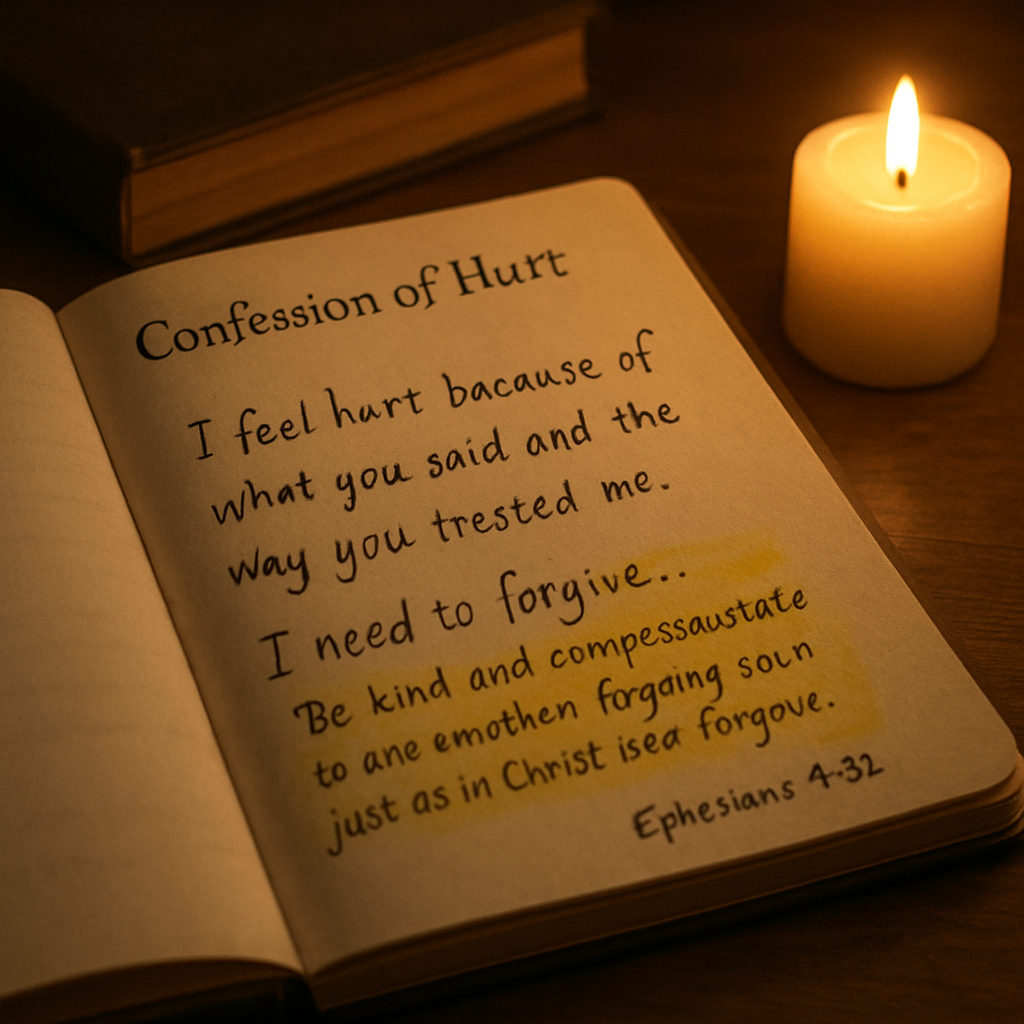 Confession of Hurt
I feel hurt bacause of
what you said and the
way you trested me.
I need to forgive..
Be kind and compessaustate
to ane emothen forgaing soun
just as in Christ isea forgove.
Ephesians 4.32